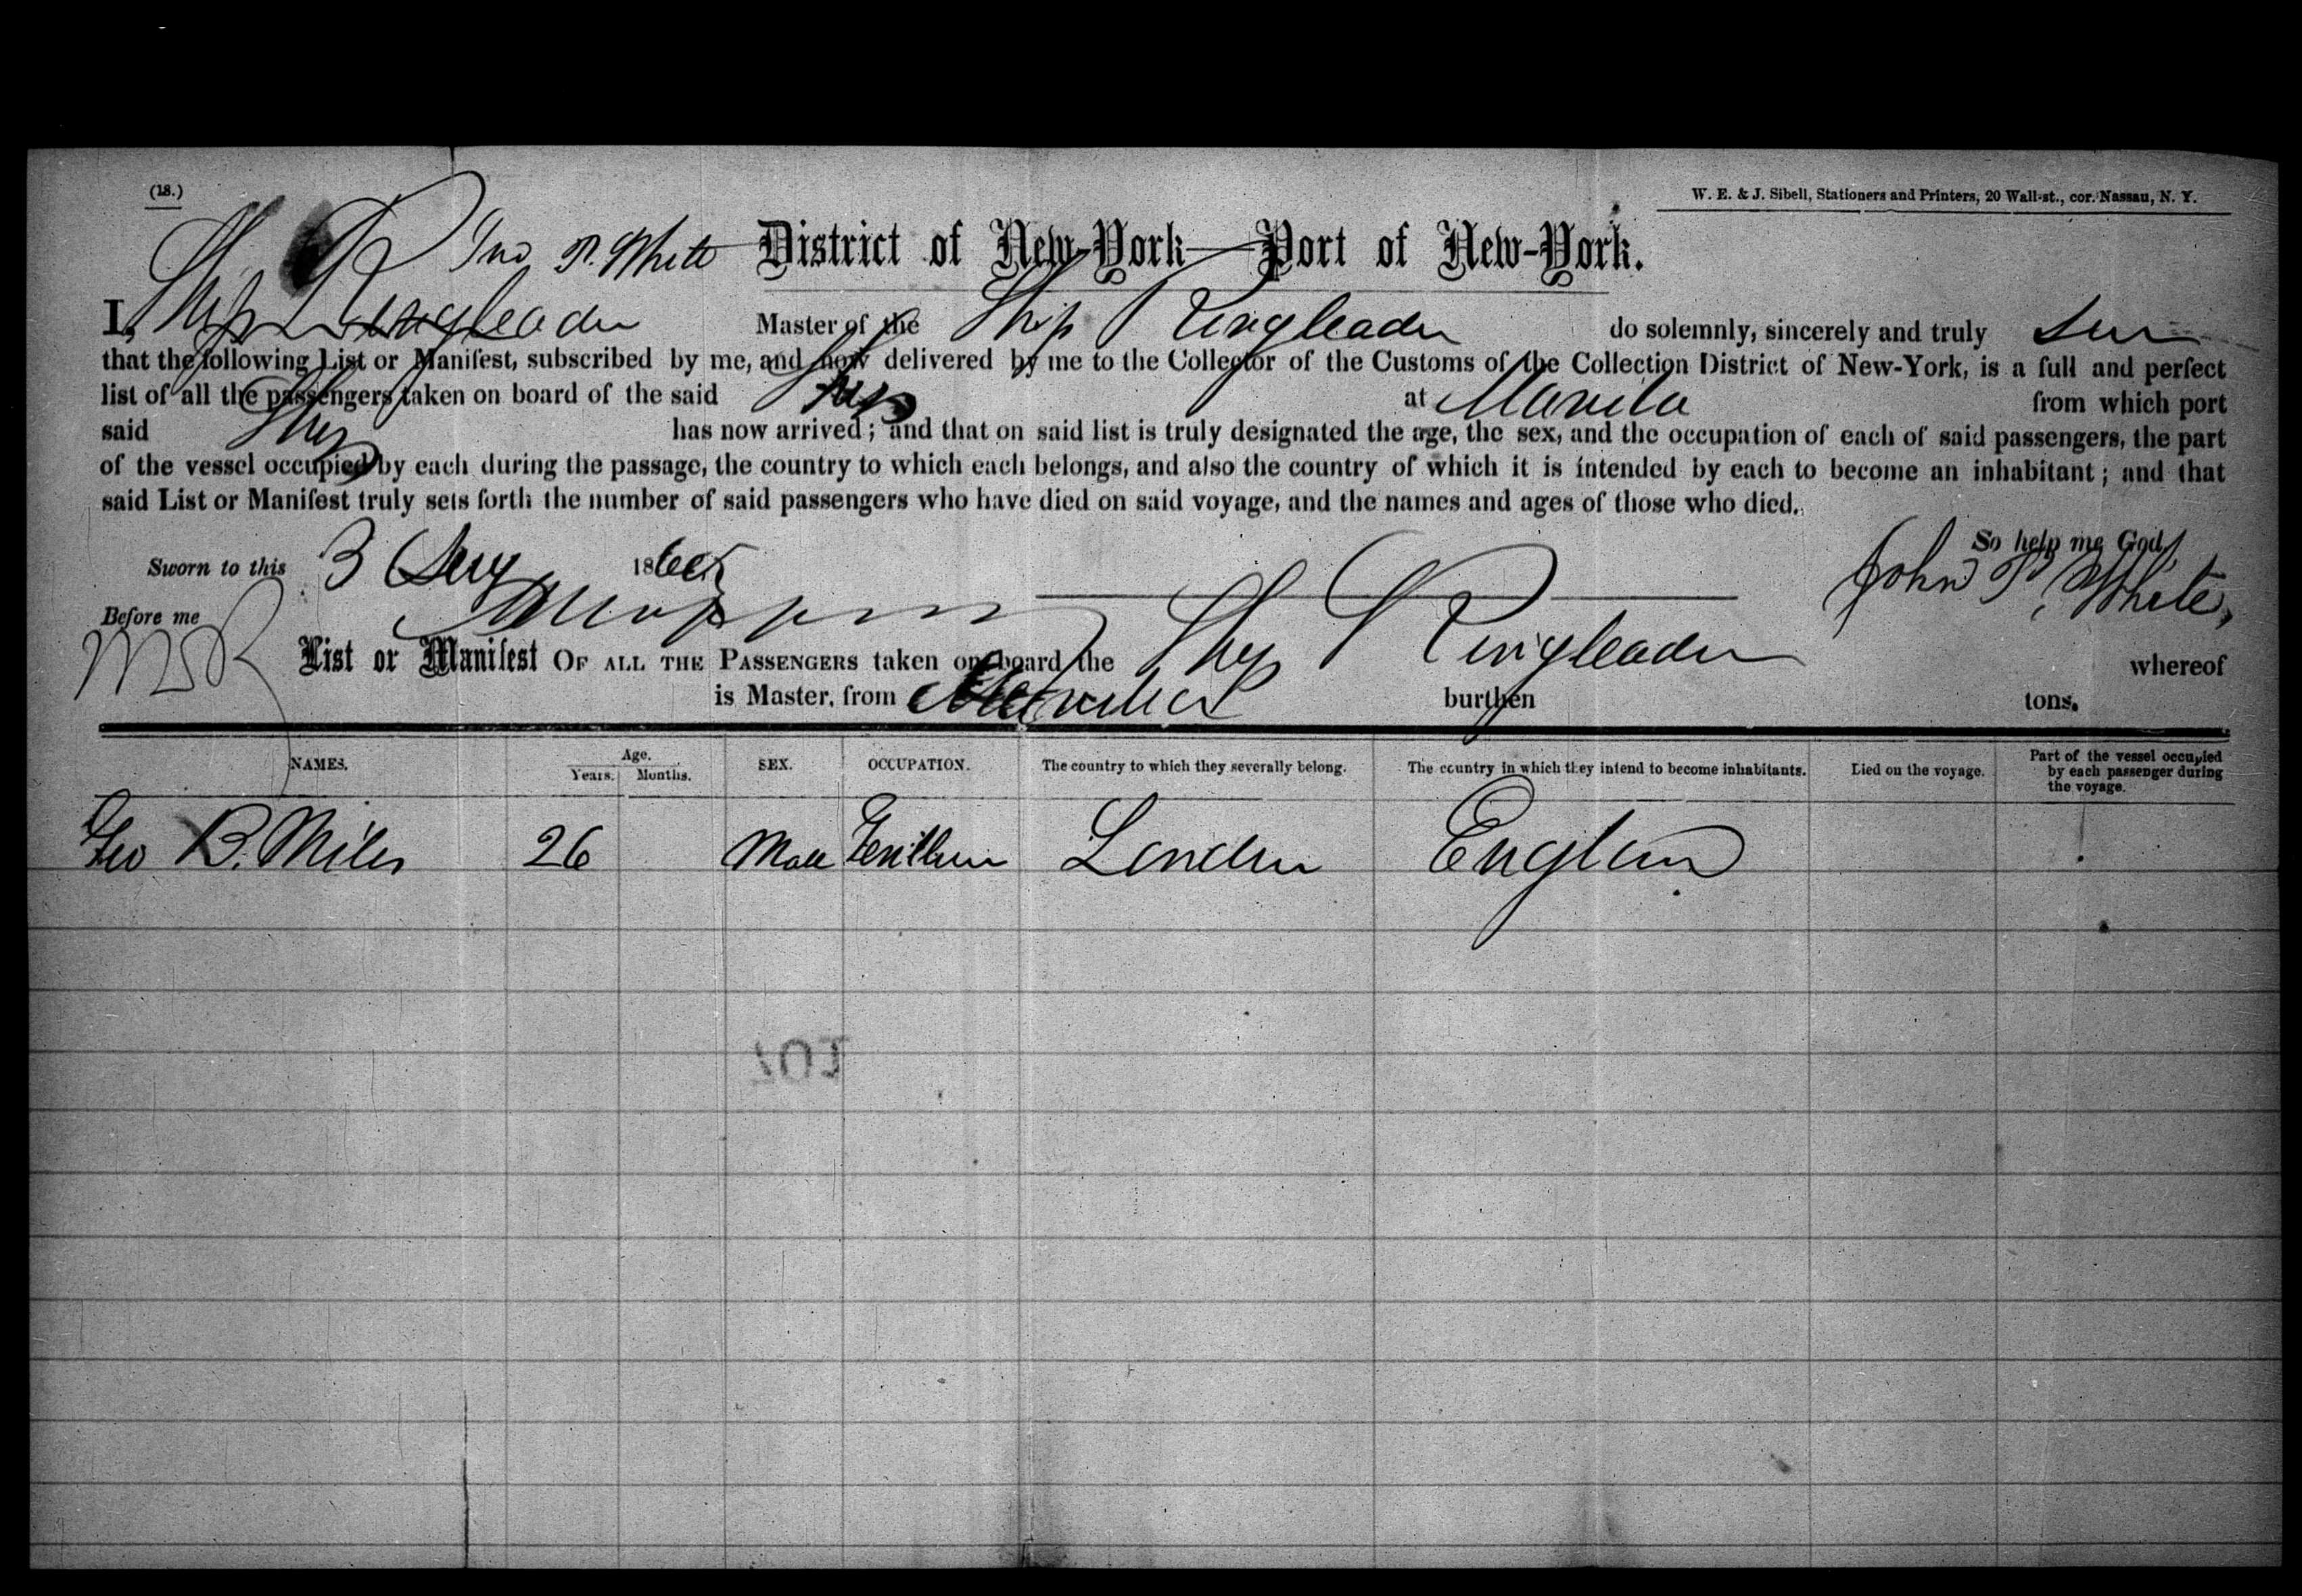 (18.)
W. E. & J. Sibell, Stationers and Printers, 20 Wall-st., cor. Nassau, N. Y.
Jno P. White District of New-York—Port of New-York.
I, Ship Ringleader Master of the Ship Ringleader do solemnly, sincerely and truly
that the following List or Manifest, subscribed by me, and now delivered by me to the Collector of the Customs of the Collection District of New-York, is a full and perfect
list of all the passengers taken on board of the said Ship at Manila from which port
said Ship has now arrived; and that on said list is truly designated the age, the sex, and the occupation of each of said passengers, the part
of the vessel occupied by each during the passage, the country to which each belongs, and also the country of which it is intended by each to become an inhabitant; and that
said List or Manifest truly sets forth the number of said passengers who have died on said voyage, and the names and ages of those who died.
So help me God,
Sworn to this 3 Aug 1865 John P. White,
Before me
List or Manifest OF ALL THE PASSENGERS taken on board the Ship Ringleader whereof
is Master, from Manila burthen tons.
NAMES. Age. Years. Months. SEX. OCCUPATION. The country to which they severally belong. The country in which they intend to become inhabitants. Died on the voyage. Part of the vessel occupied by each passenger during the voyage.
Geo B. Miles 26 Male London England
107